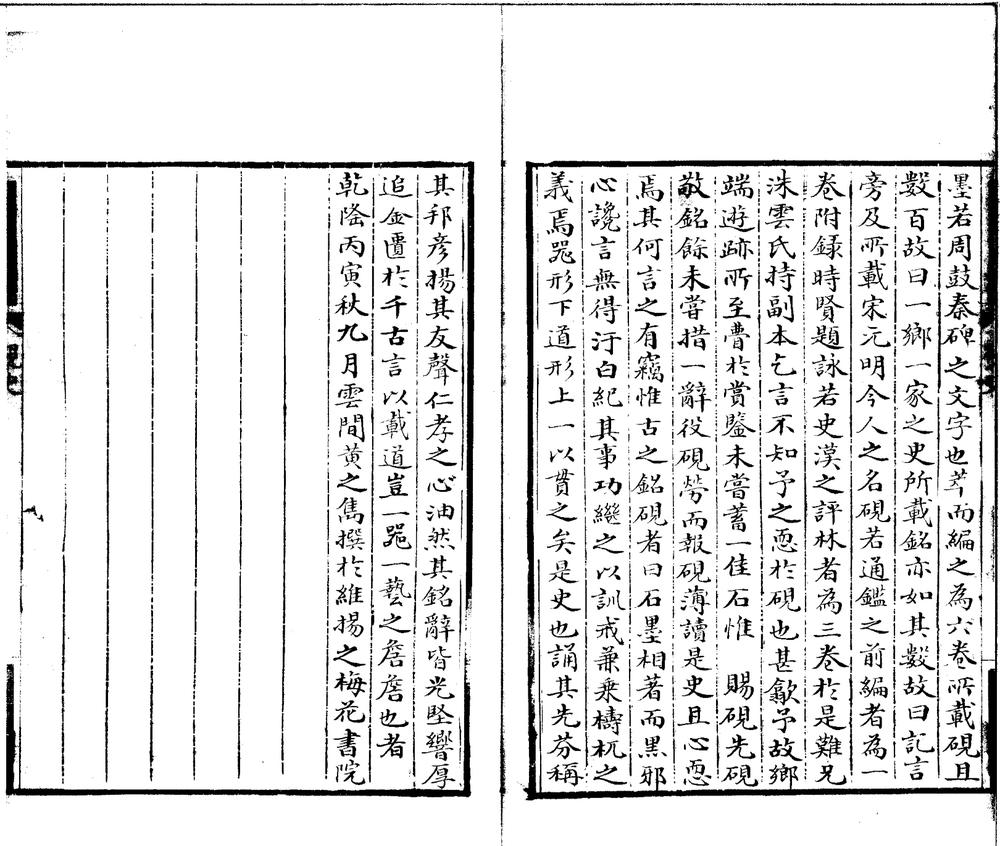 墨若周鼓秦碑之文字也萃而編之為六卷所載硯且
數百故曰一鄉一家之史所載銘亦如其數故曰記言
旁及所載宋元明今人之名硯若通鑑之前編者為一
卷附錄時賢題詠若史漢之評林者為三卷於是難兄
洙雲氏持副本乞言不知予之恧於硯也甚歙予故鄉
端遊跡所至瞢於賞鑒未嘗蓄一佳石惟 賜硯先硯
敬銘餘未嘗措一辭役硯勞而報硯薄讀是史且心恧
焉其何言之有竊惟古之銘硯者曰石墨相著而黑邪
心讒言無得汙白紀其事功繼之以訓戒兼乗檮杌之
義焉噐形下道形上一以貫之矣是史也誦其先芬稱
其邦彦揚其友聲仁孝之心油然其銘辭皆光堅響厚
追金匱於千古言以載道豈一噐一藝之詹詹也者
乾隆丙寅秋九月雲間黄之雋撰於維揚之梅花書院